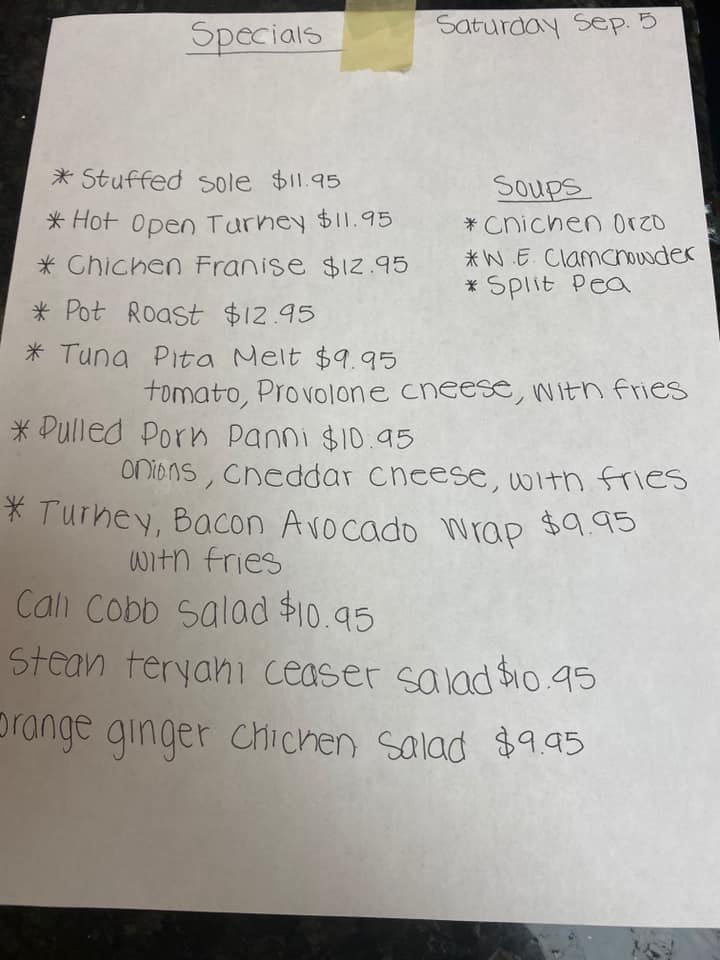 Specials
Saturday Sep. 5
* Stuffed Sole $11.95
* Hot Open Turkey $11.95
* Chicken Franise $12.95
* Pot Roast $12.95
* Tuna Pita Melt $9.95
tomato, Provolone cheese, with fries
* Pulled Pork Panni $10.95
onions, Cheddar cheese, with fries
* Turkey, Bacon Avocado Wrap $9.95
with fries
Cali Cobb Salad $10.95
Steak teryaki ceaser salad $10.95
orange ginger chicken salad $9.95
Soups
* Chicken Orzo
* N.E. Clamchowder
* Split Pea